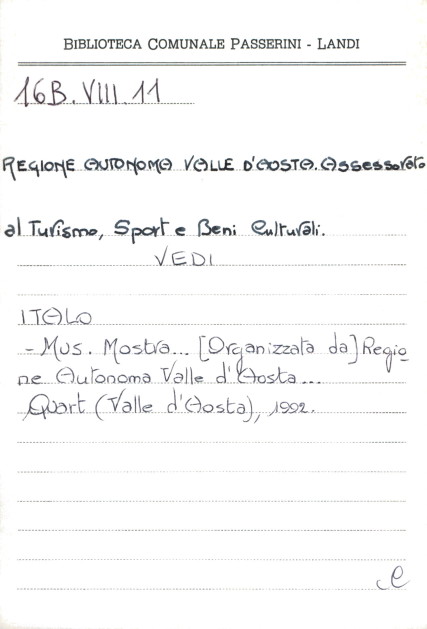 BIBLIOTECA COMUNALE PASSERINI - LANDI
16B.VIII.11
REGIONE AUTONOMA VALLE D'AOSTA. Assessorato
al Turismo, Sport e Beni Culturali.
VEDI
ITALO
- Mus. Mostra... [Organizzata da] Regio
ne Autonoma Valle d'Aosta...
Quart (Valle d'Aosta), 1992.